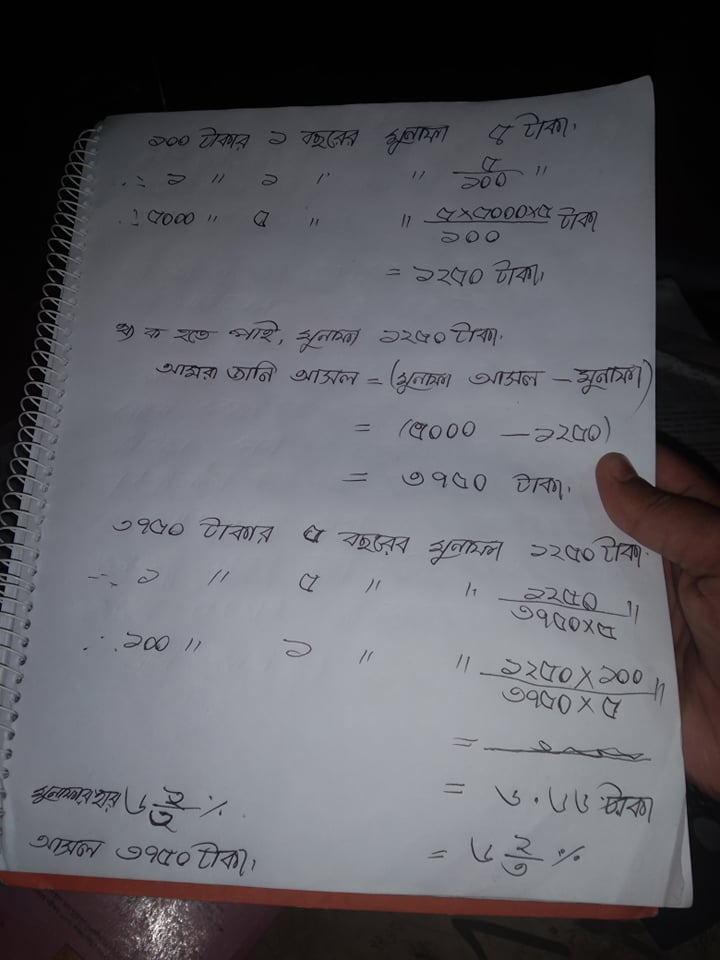 ১০০ টাকার ১ বছরের মুনাফা ৫ টাকা।
∴ ১ " ১ " " ৫/১০০ "
∴ ৫০০০ " ৫ " " ৫×৫০০০×৫/১০০ টাকা
= ১২৫০ টাকা।
খ) ক হতে পাই, মুনাফা ১২৫০ টাকা।
আমরা জানি আসল = (মুনাফা আসল – মুনাফা)
= (৫০০০ – ১২৫০)
= ৩৭৫০ টাকা।
৩৭৫০ টাকার ৫ বছরের মুনাফা ১২৫০ টাকা।
∴ ১ " ৫ " " ১২৫০/৩৭৫০×৫ "
∴ ১০০ " ১ " " ১২৫০×১০০/৩৭৫০×৫ "
=
= ৬.৬৬ টাকা
= ৬ ২/৩ %
মুনাফার হার ৬ ২/৩ %.
আসল ৩৭৫০ টাকা।